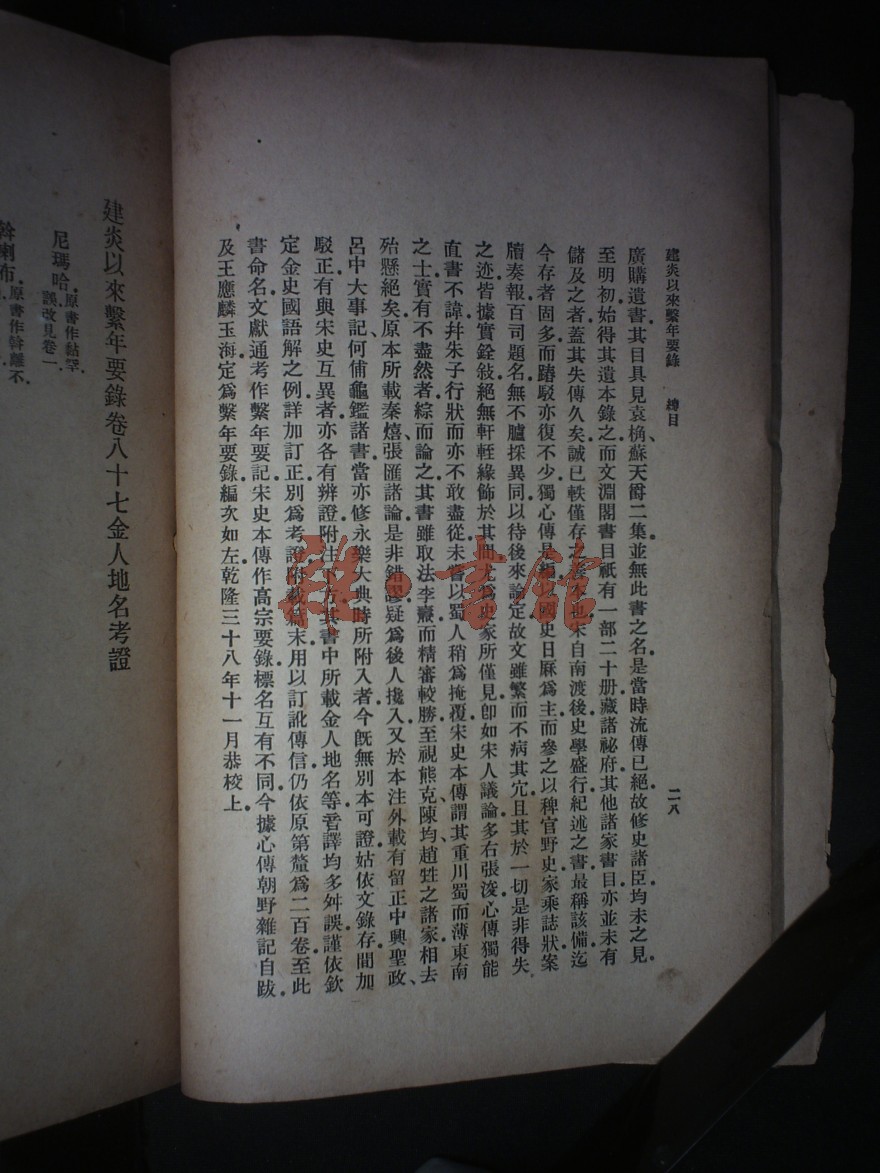 建炎以來繫年要錄　總目　二八
廣購遺書其目具見袁桷、蘇天爵二集並無此書之名是當時流傳已絕故修史諸臣均未之見
至明初始得其遺本錄之而文淵閣書目祇有一部二十册藏諸祕府其他諸家書目亦並未有
儲及之者蓋其失傳久矣誠已軼僅存之 本也宋自南渡後史學盛行紀述之書最稱該備迄
今存者固多而踳駁亦復不少獨心傳是 國史日厤爲主而參之以稗官野史家乘誌狀案
牘奏報百司題名無不臚採異同以待後來論定故文雖繁而不病其宂且其於一切是非得失
之迹皆據實銓敍絕無軒輊緣飾於其間尤爲史家所僅見卽如宋人議論多右張浚心傳獨能
直書不諱幷朱子行狀而亦不敢盡從未嘗以蜀人稍爲掩覆宋史本傳謂其重川蜀而薄東南
之士實有不盡然者綜而論之其書雖取法李燾而精審較勝至視熊克、陳均、趙甡之諸家相去
殆懸絕矣原本所載秦熺、張匯諸論是非錯謬疑爲後人攙入又於本注外載有留正中興聖政、
呂中大事記、何俌龜鑑諸書當亦修永樂大典時所附入者今旣無別本可證姑依文錄存間加
駁正有與宋史互異者亦各有辨證附注下方其書中所載金人地名等音譯均多舛誤謹依欽
定金史國語解之例詳加訂正別爲考證附載篇末用以訂訛傳信仍依原第釐爲二百卷至此
書命名文獻通考作繫年要記宋史本傳作高宗要錄標名互有不同今據心傳朝野雜記自跋
及王應麟玉海定爲繫年要錄編次如左乾隆三十八年十一月恭校上
建炎以來繫年要錄卷八十七金人地名考證
尼瑪哈 原書作黏罕誤改見卷一
斡喇布 原書作斡離不
雜·書館